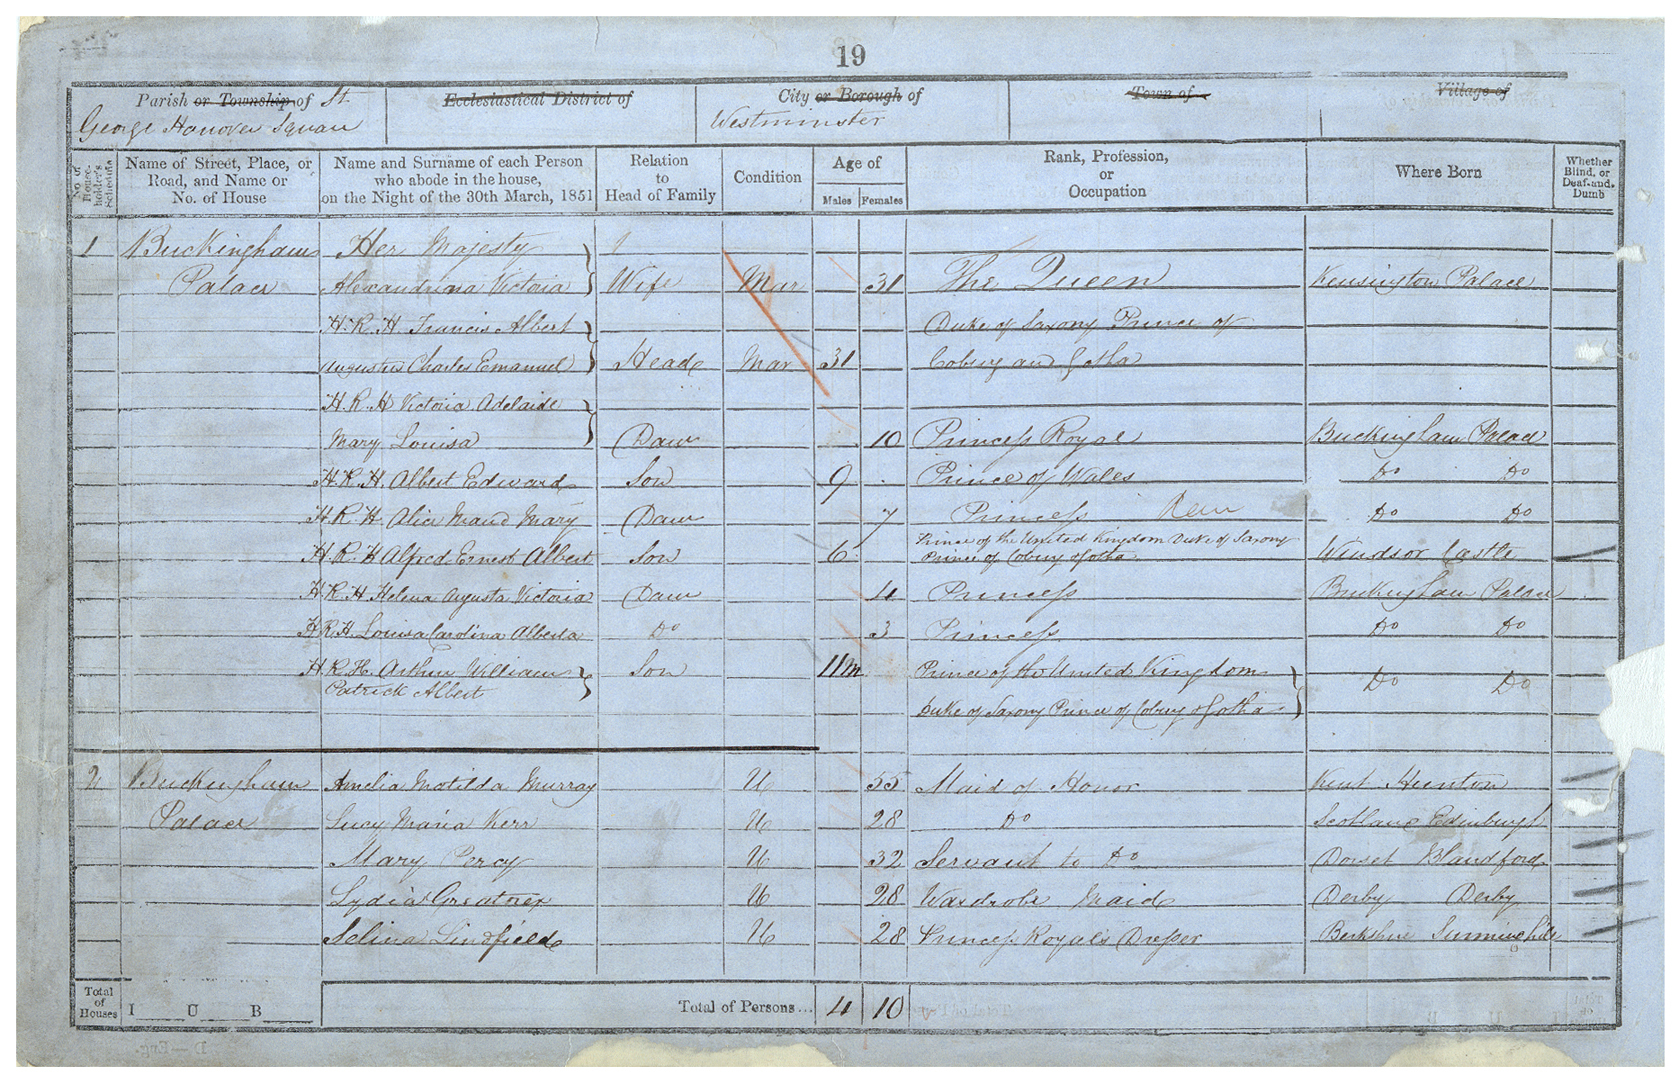 19
Parish or Township of St.
George Hanover Square
Ecclesiastical District of
City or Borough of
Westminster
Town of
Village of
No. of House-holder's Schedule
Name of Street, Place, or Road, and Name or No. of House
Name and Surname of each Person who abode in the house, on the Night of the 30th March, 1851
Relation to Head of Family
Condition
Age of
Males Females
Rank, Profession, or Occupation
Where Born
Whether Blind, or Deaf-and-Dumb
1 Buckingham Her Majesty
Palace Alexandrina Victoria Wife Mar 31 The Queen Kensington Palace
H.R.H Francis Albert Duke of Saxony Prince of
Augustus Charles Emanuel Head Mar 31 Coburg and Gotha
H.R.H Victoria Adelaide
Mary Louisa Daur 10 Princess Royal Buckingham Palace
H.R.H. Albert Edward Son 9 Prince of Wales Do Do
H.R.H. Alice Maud Mary Daur 7 Princess Do Do
H.R.H Alfred Ernest Albert Son 6 Prince of the United Kingdom Duke of Saxony
Prince of Coburg & Gotha Windsor Castle
H.R.H Helena Augusta Victoria Daur 4 Princess Buckingham Palace
H.R.H. Louisa Carolina Alberta Do 3 Princess Do Do
H.R.H. Arthur William Son 11m Prince of the United Kingdom Do Do
Patrick Albert
Duke of Saxony Prince of Coburg & Gotha
2 Buckingham Amelia Matilda Murray U 55 Maid of Honor Kent Hunton
Palace Lucy Maria Kerr U 28 Do Scotland Edinburgh
Mary Percy U 32 Servant to Do Dorset Blandford
Lydia Greatorex U 28 Wardrobe Maid Derby Derby
Selina Lindfield U 28 Princess Royal's Dresser Berkshire Sunninghill
Total of Houses I U B Total of Persons... 4 10
D—Eng.